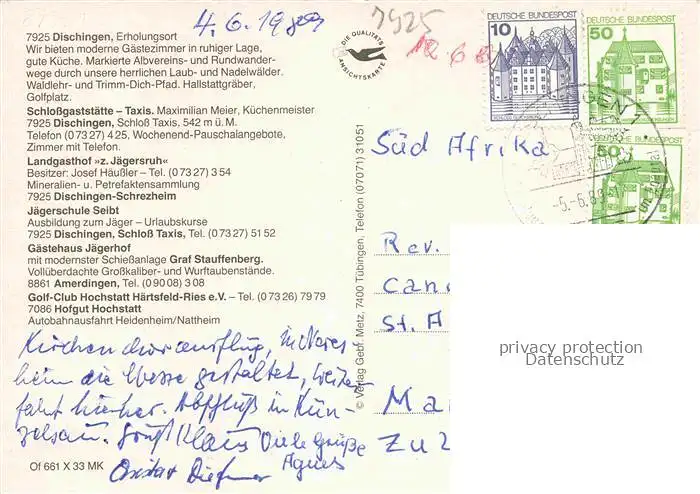 4.6.1989
7925
7925 Dischingen, Erholungsort
Wir bieten moderne Gästezimmer in ruhiger Lage,
gute Küche. Markierte Albvereins- und Rundwander-
wege durch unsere herrlichen Laub- und Nadelwälder.
Waldlehr- und Trimm-Dich-Pfad. Hallstattgräber,
Golfplatz.
Schloßgaststätte – Taxis. Maximilian Meier, Küchenmeister
7925 Dischingen, Schloß Taxis, 542 m ü. M.
Telefon (07327) 425, Wochenend-Pauschalangebote,
Zimmer mit Telefon.
Landgasthof »z. Jägersruh«
Besitzer: Josef Häußler – Tel. (07327) 354
Mineralien- u. Petrefaktensammlung
7925 Dischingen-Schrezheim
Jägerschule Seibt
Ausbildung zum Jäger – Urlaubskurse
7925 Dischingen, Schloß Taxis, Tel. (07327) 5152
Gästehaus Jägerhof
mit modernster Schießanlage Graf Stauffenberg.
Vollüberdachte Großkaliber- und Wurftaubenstände.
8861 Amerdingen, Tel. (09008) 308
Golf-Club Hochstatt Härtsfeld-Ries e.V. – Tel. (07326) 7979
7086 Hofgut Hochstatt
Autobahnausfahrt Heidenheim/Nattheim
Kirchenchorausflug, in
heim die Messe gestaltet,
fahrt hierher. in Kün-
zelsau. Gruß Klaus Viele Grüße
Agnes
Of 661 X 33 MK
© Verlag Gebr. Metz, 7400 Tübingen, Telefon (07071) 31051
DIE QUALITÄTS
ANSICHTSKARTE
DEUTSCHE BUNDESPOST
10
DEUTSCHE BUNDESPOST
50
50
-5.-6.89
Süd Afrika
Rev.
Can
St. A
Ma
Zu
privacy protection
Datenschutz